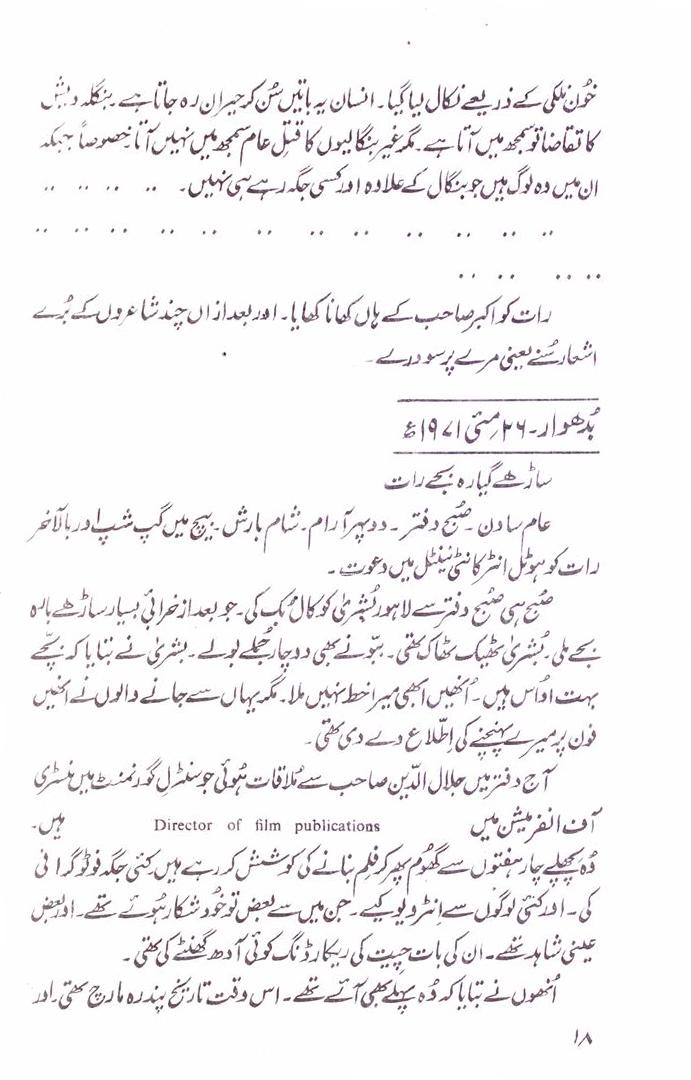 خُون نلکی کے ذریعے نکال لیا گیا۔ انسان یہ باتیں سُن کر حیران رہ جاتا ہے۔ بنگلہ دیش
کا تقاضا تو سمجھ میں آتا ہے۔ مگر غیر بنگالیوں کا قتلِ عام سمجھ میں نہیں آتا خصوصاً جبکہ
ان میں وہ لوگ ہیں جو بنگال کے علاوہ اور کسی جگہ رہے ہی نہیں۔ .. .. .. ..
.. .. .. .. .. .. .. .. .. .. .. .. ..
.. .. .. ..
رات کو اکبر صاحب کے ہاں کھانا کھایا۔ اور بعد ازاں چند شاعروں کے بُرے
اشعار سُنے یعنی مرے پر سو دُرے۔
بُدھوار۔ ۲۶؍ مئی ۱۹۷۱ء
ساڑھے گیارہ بجے رات
عام سا دن۔ صُبح دفتر۔ دوپہر آرام۔ شام بارش۔ بیچ میں گپ شپ اور بالآخر
رات کو ہوٹل انٹر کانٹی نینٹل میں دعوت۔
صُبح ہی صُبح دفتر سے لاہور بُشریٰ کو کال بُک کی۔ جو بعد از خرابئ بسیار ساڑھے بارہ
بجے ملی۔ بُشریٰ ٹھیک ٹھاک تھی۔ ببّو نے بھی دو چار جُملے بولے۔ بشریٰ نے بتایا کہ بچّے
بہت اُداس ہیں۔ اُنھیں ابھی میرا خط نہیں ملا۔ مگر یہاں سے جانے والوں نے انھیں
فون پر میرے پہنچنے کی اِطّلاع دے دی تھی۔
آج دفتر میں جلال الدّین صاحب سے مُلاقات ہُوئی جو سنٹرل گورنمنٹ میں منسٹری
آف انفرمیشن میں Director of film publications ہیں۔
وُہ پچھلے چار ہفتوں سے گھُوم پھر کر فلم بنانے کی کوشش کر رہے ہیں کئی جگہ فوٹو گرافی
کی۔ اور کئی لوگوں سے انٹرویو کیے۔ جن میں سے بعض تو خُود شکار ہُوئے تھے۔ اور بعض
عینی شاہد تھے۔ ان کی بات چیت کی ریکارڈنگ کوئی آدھ گھنٹے کی تھی۔
اُنھوں نے بتایا کہ وُہ پہلے بھی آئے تھے۔ اس وقت تاریخ پندرہ مارچ تھی۔ اور
۱۸